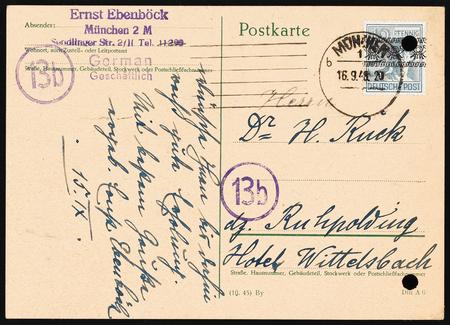 Absender:
Ernst Ebenböck
München 2 M
Sendlinger Str. 2/II Tel. 11299
Wohnort, auch Zustell- oder Leitpostamt
German
Geschäftlich
Straße, Hausnummer, Gebäudeteil, Stockwerk oder Postschließfachnummer
13b
wünsche Ihnen
gute Erholung.
Mit besten
15. IX.
Postkarte
MÜNCHEN
1
b
16.9.48. 20
PFENNIG
DEUTSCHE POST
Herrn
Dr H. Kück
13b
dz. Ruhpolding
Hotel Wittelsbach
Straße, Hausnummer, Gebäudeteil, Stockwerk oder Postschließfachnummer
(10. 45) By
Din A 6